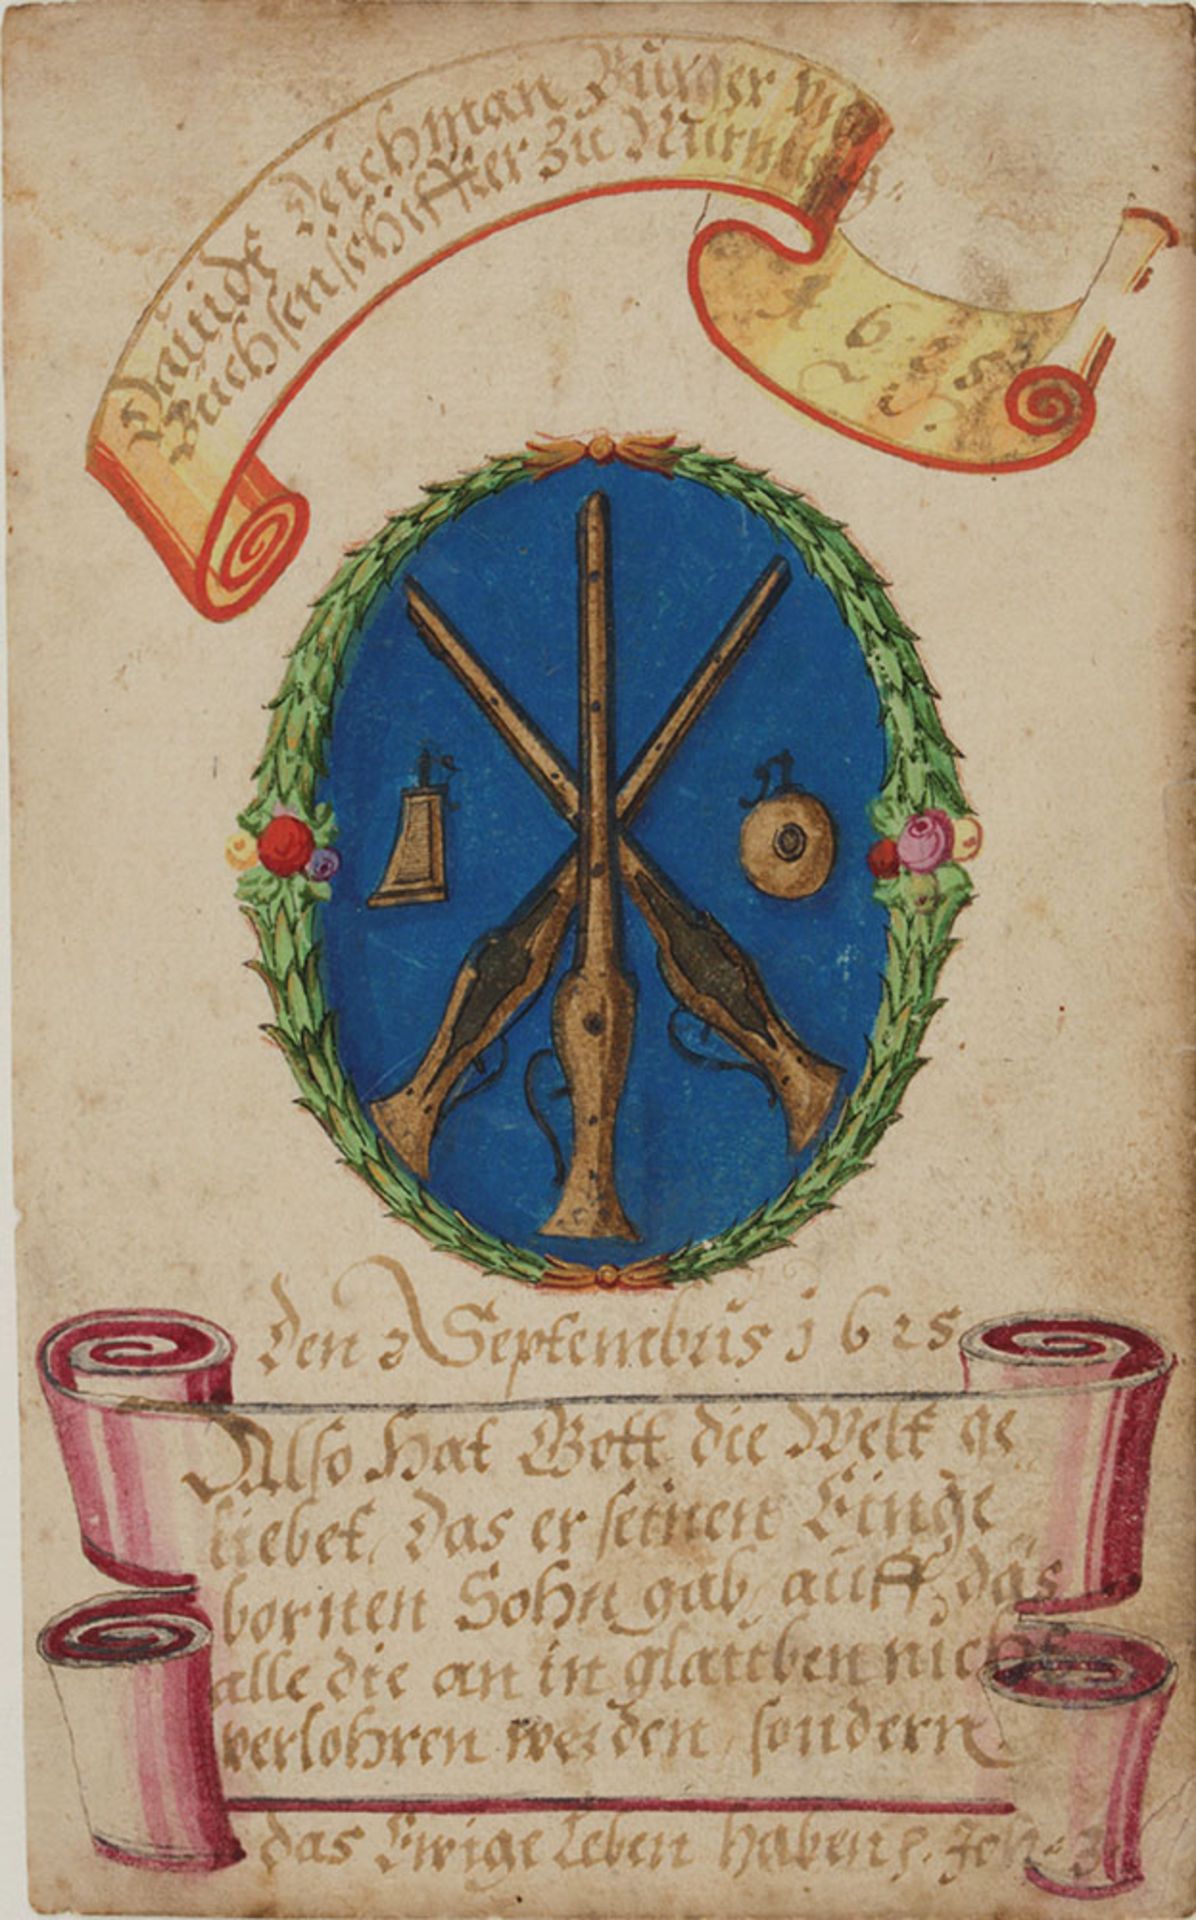 Dauidt Deichman Bürger vnd
Büchsenschiffter zu Nürnberg.
A 1625
den 2 Septembris 1625
Also hat Gott die Welt ge
liebet, das er seinen Einge
bornen Sohn gab, auff das
alle die an in glauben nicht
verlohren werden, sondern
das Ewige Leben haben, Joh. 3.